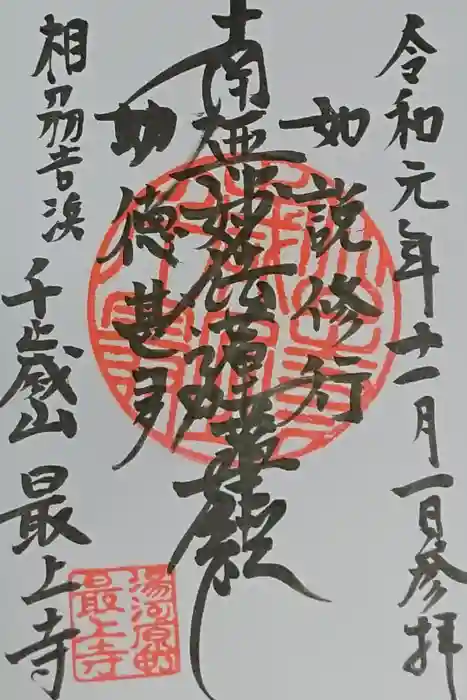 令和元年十一月一日参拝
如説修行
南無妙法蓮華経
功徳甚多
相州吉浜
最上寺
湯河原町
最上寺